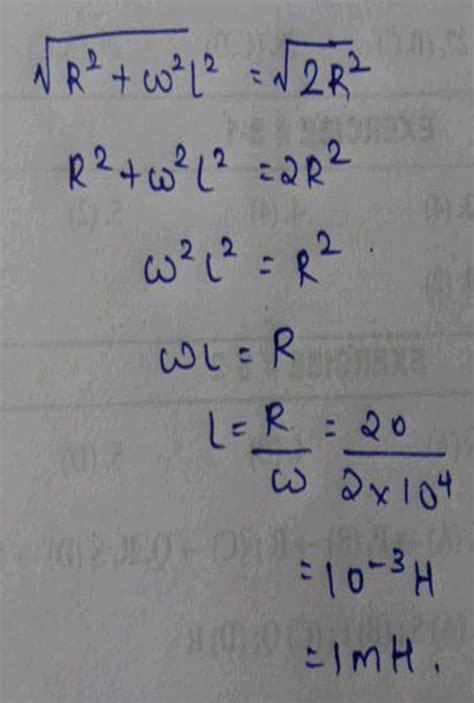 √(R² + ω²L²) = √(2R²)
R² + ω²L² = 2R²
ω²L² = R².
ωL = R
L = R/ω = 20/(2×10⁴)
= 10⁻³H
= 1mH.